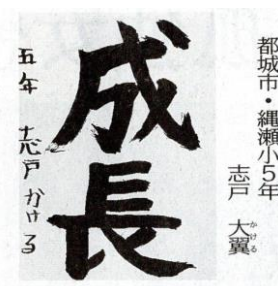 都城市・縄瀬小5年
志戸 大翼
かける
成長
五年 志戸かける